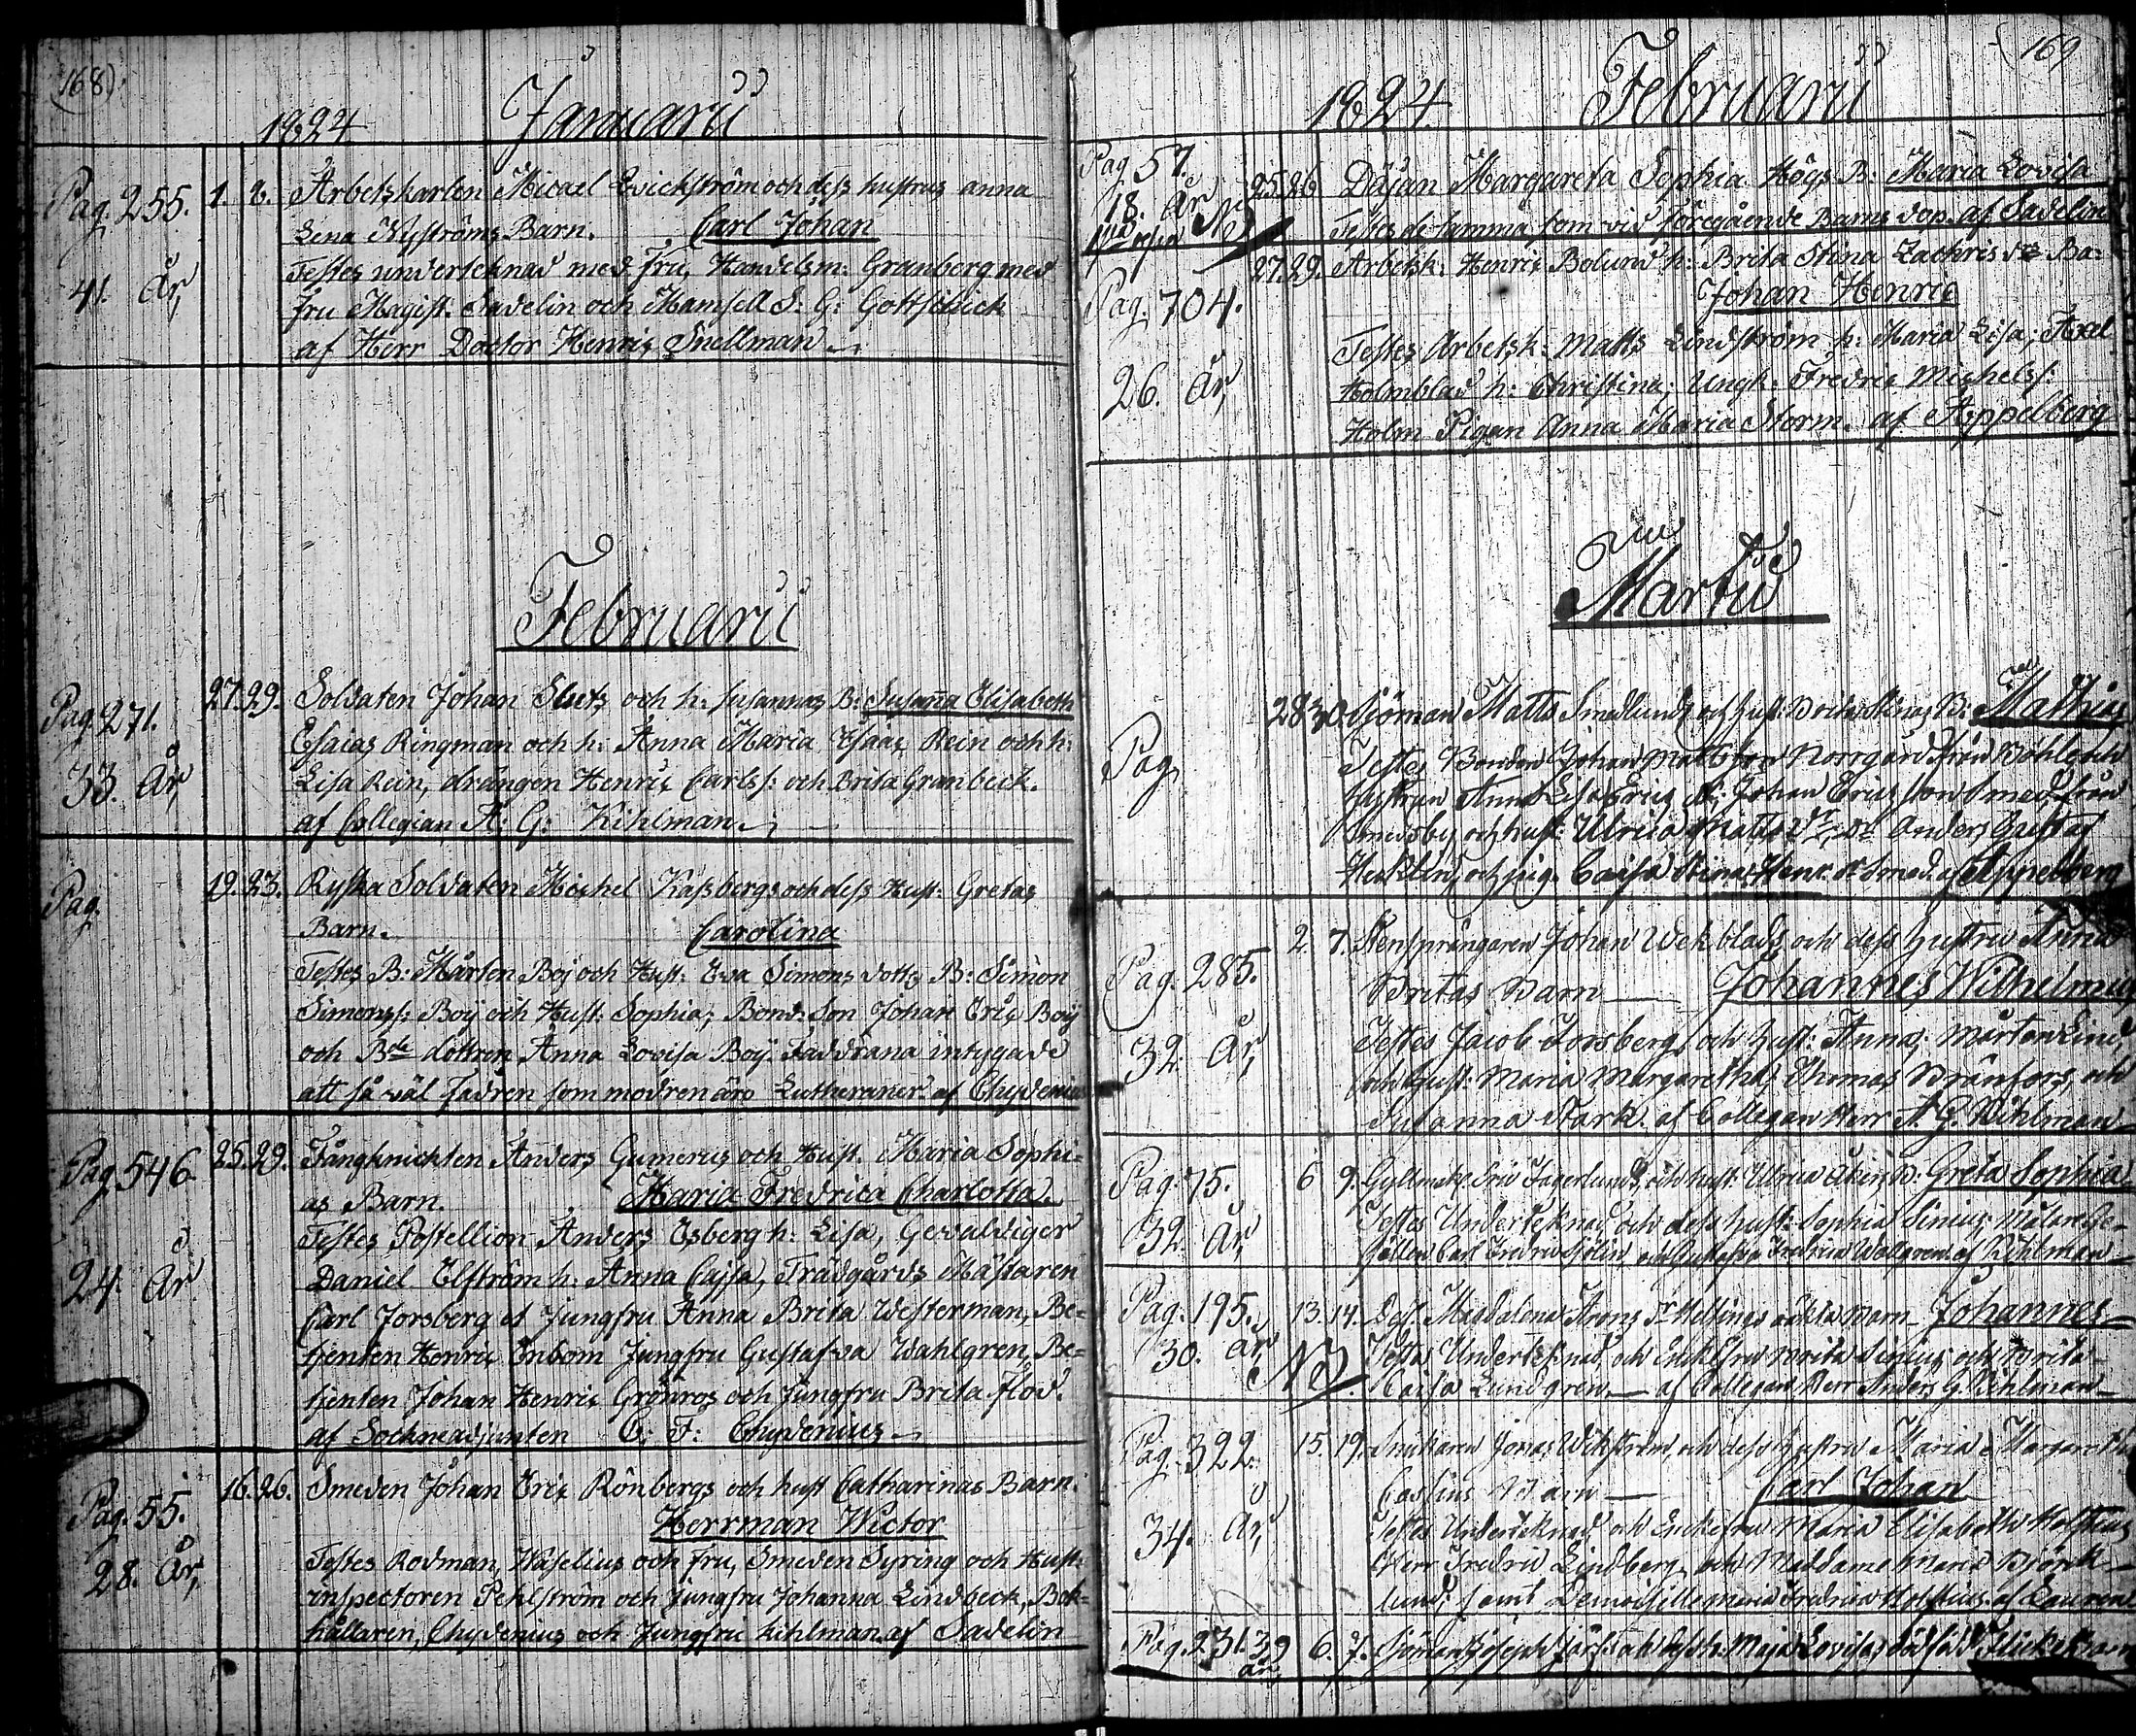 168)
1824 Januarii
Pag. 255. 1. 2. Arbetskarlen Micael Wickström och dess hustrus Anna
Lena Nyströms Barn. Carl Johan
41. År, Testes underteknad med Fru, Handelsm: Granberg med
fru Magist. Sadelin och Mamsell S: G:
af Herr Doctor Henric Snellman
Februarii
Pag. 271. 27. 29. Soldaten Johan och h: Susannas B: Susanna Elisabeth
Esaias Ringman och h: Anna Maria, Esaas Rein och h:
33. År, Lisa Rein, drängen Henric Carls: och Brita Granbeck.
af Collegian A: G: Kihlman.
Pag. 19. 23. Ryska Soldaten Michel Kassbergs och dess Hust: Gretas
Barn. Carolina
Testes B: Mårten Boj och Hust: Eva Simons dotter B: Simon
Simonss: Boij och Hust: Sophia; Bond: Son Johan Eric Boij
och Bde dottren Anna Lovisa Boij. Faddrana intygade
att så väl fadren som modren äro Lutheraner af Chydenius
Pag. 546. 25. 29. Fångknichten Anders Gumerus och Hust. Maria Sophi-
as Barn. Maria Fredrica Charlotta.
Testes Postellion Anders Esberg h: Lisa, Gevaldiger
24. År Daniel Elfström h: Anna Cajsa, Trädgårds Mästaren
Carl Forsberg et Jungfru Anna Brita Westerman, Be-
tjenten Henric Enbom Jungfru Gustafva Wahlgren, Be-
tjenten Johan Henric Grönros och Jungfru Brita Flod.
af Sockneadjunten C: F: Chydenius
Pag. 55. 16. 26. Smeden Johan Eric Rönbergs och hust Catharinas Barn.
Herrman Wictor
28. År, Testes Rodman, Waselius och Fru, Smeden Syring och Hust:
inspectoren Pehlström och Jungfru Johanna Lindbeck, Bok-
hållaren, Chydenius och Jungfru Kihlman af Sadelin
(169
1824 Februarii
Pag 57. 25. 26 Margareta Sophia Högs B: Maria Lovisa
18. År Testes de samma som vid föregående Barns dop. af Sadelin
27. 29. Arbetsk: Henric Bolund h: Brita Stina Zachris Ba:
Pag. 704. Johan Henric
Testes Arbetsk: Matts Lindström h: Maria Lisa; Axel
26. År, Holmblad h: Christina; Ungk: Fredric Michelss:
Holm Pigan Anna Maria Storm. af Appelberg
Martii
28 30. Sjöman Matts Smedlunds och Hust: Brita Stinas B: Mathias
Pag. Testes Bonden Johan Mattsson Norrgård från Böhle och
Hustrun Anna Lisa Erics Johan Ericsson Smeds från
Smedsby och hust: Ulrica Matts Anders Gustaf
och pig: Caisa Stina Henr. Smed. af Appelberg
Pag. 285. 2. 7. Stensprängaren Johan Wekblads och dess hustru Anna
Britas Barn Johannes Wilhelmus
32. År, Testes Jacob Forsberg och hust: Anna; Mårten Lind
och hust: Maria Margaretha; Thomas Brånfors, och
Susanna Stark. af Collegan Herr A. G. Kihlman
Pag. 75. 6 9. Fagerlunds och hust: Ulrica B: Greta Sophia
32. År, Testes Undertecknad och dess hust: Sophia Målare Ge-
sällen Carl Fredric Sjölin, och Gustafva Fredrica Wallgren af Kihlman
Pag. 195. 13. 14. Magdalena Barn Johannes
30. År Testes Undertecknad, och Enkefru Brita och Brita
Caisa Lundgren af Collegan Herr Anders G. Kihlman
Pag. 322. 15. 19. Snickaren Jonas Wikström och dess hustru Maria Margaretha
Barn Carl Johan
34. År, Testes Undertecknad och Enkefru Maria Elisabeth
Herr Fredric Lindberg och Maddame Maria Björk-
lund samt Demoiselle Maria Fredrica af
Pag. 231. 39 år 6. 7. Sjöman Joseph och dess h: Maja Lovisas